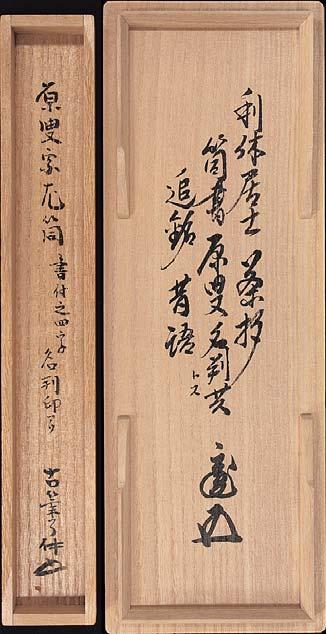 利休居士 茶杓
筒書 原叟名判共
トス
追銘 昔語
原叟宗左筒 書付之四字
名判印有
古筆了仲